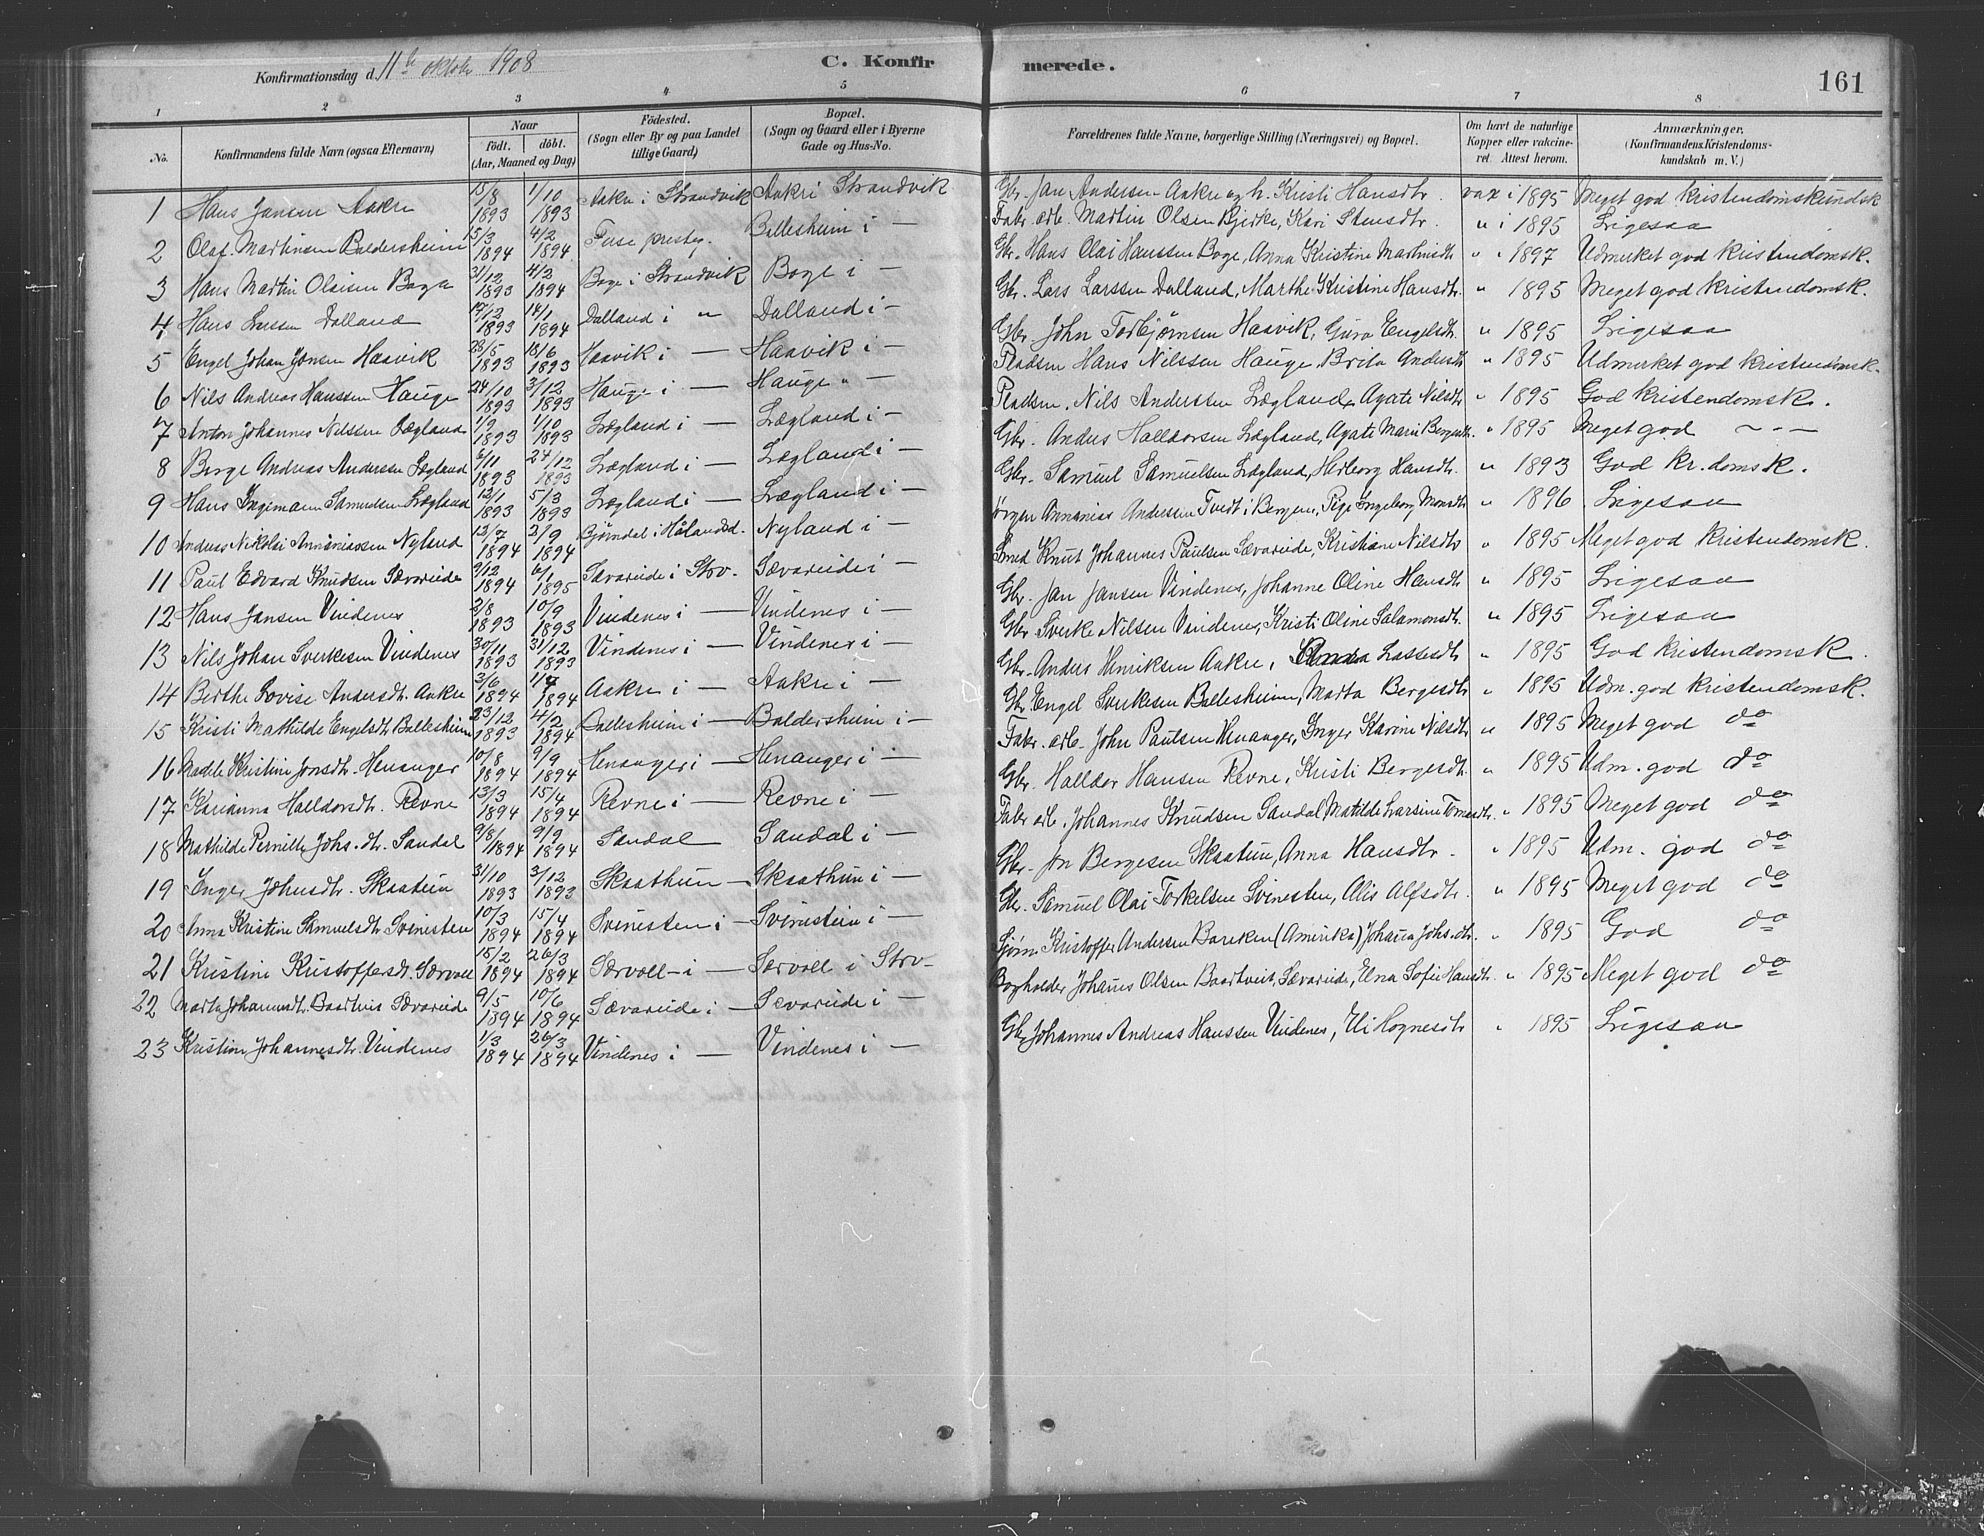 Konfirmationsdag d. 11te oktobr 1908 C. Konfirmerede. 161
1 2 3 4 5 6 7 8
No. Konfirmandens fulde Navn (ogsaa Efternavn) Naar födt. döbt. (Aar, Maaned og Dag) Födested. (Sogn eller By og paa Landet tillige Gaard) Bopæl. (Sogn og Gaard eller i Byerne Gade og Hus-No. Forældrenes fulde Navne, borgerlige Stilling (Næringsvei) og Bopæl. Om havt de naturlige Kopper eller vakcineret. Attest herom. Anmærkninger. (Konfirmandens Kristendomskundskab m. V.)
1 Hans Jansen Aakre 15/8 1893 1/10 1893 Aakre i Strandvik Aakre i Strandvik Gbr. Jan Andersen Aakre og h. Kristi Hansdtr. vax i 1895 Meget god kristendomskundsk
2 Olaf Martinsen Baldersheim 15/3 1894 4/2 1894 Fuse presteg. Ballesheim i — Fabr. arb. Martin Olsen Bjerke, Kari Stensdtr. " i 1895 Ligesaa
3 Hans Martin Olaisen Boge 31/12 1893 4/2 1894 Boge i Strandvik Boge i — Gbr. Hans Olai Hanssen Boge, Anna Kristine Martinsdtr " " 1897 Udmerket god kristendomsk.
4 Hans Larssen Dalland 17/12 1893 14/1 1894 Dalland i " Dalland i — Gbr. Lars Larssen Dalland, Marthe Kristine Hansdtr. " 1895 Meget god kristendomsk.
5 Engel Johan Jonsen Haavik 28/5 1893 18/6 1893 Haavik i — Haavik i — Gbr. John Torbjørnsen Haavik, Guro Engelsdtr. " 1895 Ligesaa
6 Nils Andreas Hanssen Hauge 24/10 1893 3/12 1893 Hauge i — Hauge " — Pladsm Hans Nilssen Hauge, Brita Andersdtr " 1895 Udmerket god kristendomsk.
7 Anton Johannes Nilssen Lægland 1/9 1893 1/10 1893 Lægland i — Lægland i — Pladsm. Nils Anderssen Lægland, Agate Nilsdtr " 1895 God kristendomsk.
8 Berge Andreas Andersen Lægland 6/11 1893 24/12 1893 Lægland i — Lægland i — Gbr. Anders Halldorsen Lægland, Agate Marie Bergesdtr. " 1895 Meget god — - —
9 Hans Ingemann Samuelsen Lægland 12/1 1893 5/3 1893 Lægland i — Lægland i — Gbr. Samuel Samuelsen Lægland, Herborg Hansdtr. " 1893 God kr.domsk.
10 Andreas Nikolai Annaniassen Nyland 13/7 1894 2/9 1894 Bjørndal i Hålandsd. Nyland i — Jørgen Annanias Andersen Tvedt i Bergen, Pige Ingeborg Monsdtr " 1896 Ligesaa
11 Paul Edvard Knudsen Sævareide 9/12 1894 6/1 1895 Sævareide i Strv. Sævareide i — Smed Knut Johannes Paulsen Sævareide, Kristiane Nilsdtr " 1895 Meget god kristendomsk.
12 Hans Jansen Vindenes 2/8 1893 10/9 1893 Vindenes i — Vindenes i — Gbr. Jan Jansen Vindenes, Johanne Oline Hansdtr " 1895 Ligesaa
13 Nils Johan Sverkesen Vindenes 30/11 1893 31/12 1893 Vindenes i — Vindenes i — Gbr. Sverke Nilsen Vindenes, Kristi Oline Salamonsdtr. " 1895 Ligesaa
14 Birthe Lovise Andersdtr. Aakre 3/6 1894 1/7 1894 Aakre i — Aakre i — Gbr. Anders Henriksen Aakre, Anna Lassesdtr " 1895 God kristendomsk.
15 Kristi Mathilde Engelsdtr Ballesheim 23/12 1893 4/2 1894 Ballesheim i — Baldersheim i — Gbr. Engel Sverkesen Ballesheim, Marta Bergesdtr " 1895 Udm. god kristendomsk.
16 Madele Kristine Jonsdtr. Henanger 10/8 1894 9/9 1894 Henanger i — Henanger i — Fabr. arb. John Paulsen Henanger, Inger Karine Nilsdtr " 1895 Meget god do
17 Karianna Halldorsdtr. Revne 13/3 1894 15/4 1894 Revne i — Revne i — Gbr. Halldor Hansen Revne, Kristi Bergesdtr. " 1895 Udm. god do
18 Mathilde Pernille Johs.dtr. Sandal 9/8 1894 9/9 1894 Sandal Sandal i — Fabr arb. Johannes Knudsen Sandal, Matilde Larsine Tomasdtr " 1895 Meget god do
19 Inger Johnsdtr. Skaatun 31/10 1893 3/12 1893 Skaathun — Skaathun i — Gbr. Jon Bergesen Skaatun, Anna Hansdtr. " 1895 Udm. god do
20 Anna Kristine Samuelsdtr Svinesten 10/3 1894 15/4 1894 Svinesten i — Svinestein i — Gbr. Samuel Olai Torkelsen Svinesten, Alis Alfsdtr. " 1895 Meget god do
21 Kristine Kristoffersdt. Særvoll 15/2 1894 26/3 1894 Særvoll i — Særvoll i Strv- Sjøm Kristoffer Andersen Bareken (Amirika) Johanna Johs.dtr. " 1895 God do
22 Marta Johannesdtr. Baartveit Sævareide 9/5 1894 10/6 1894 Sævareide i — Sævareide i — Bogholder Johannes Olsen Baartveit, Sævareide, Elna Sofie Hansdtr. " 1895 Meget god do
23 Kristine Johannesdtr. Vindenes 1/3 1894 26/3 1894 Vindenes i — Vindenes i — Gbr. Johannes Andreas Hanssen Vindenes, Eli Hognesdtr " 1895 Ligesaa